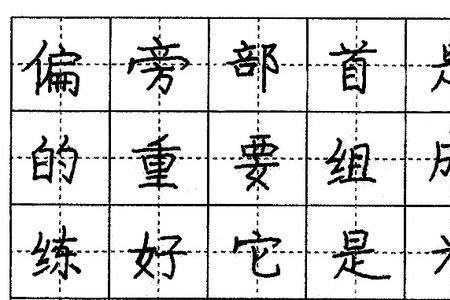 偏旁部首
的重要组
练好它是